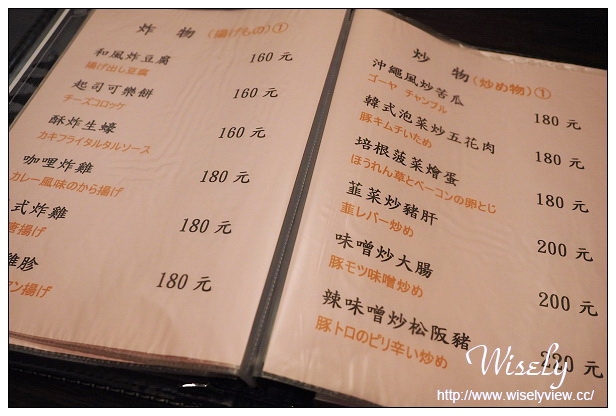 炸 物 (揚げもの)①
和風炸豆腐 160 元
揚げ出し豆腐
起司可樂餅 160 元
チーズコロッケ
酥炸生蠔 160 元
カキフライタルタルソース
咖哩炸雞 180 元
カレー風味のから揚げ
式炸雞 180 元
揚げ
雞胗 180 元
揚げ
炒 物 (炒め物)①
沖繩風炒苦瓜 180 元
ゴーヤ チャンプル
韓式泡菜炒五花肉 180 元
豚キムチいため
培根菠菜燴蛋 180 元
ほうれん草とベーコンの卵とじ
韮菜炒豬肝 200 元
韮レバー炒め
味噌炒大腸 200 元
豚モツ味噌炒め
辣味噌炒松阪豬 220 元
豚トロのピリ辛い炒め
Wisely
http://www.wiselyview.cc/